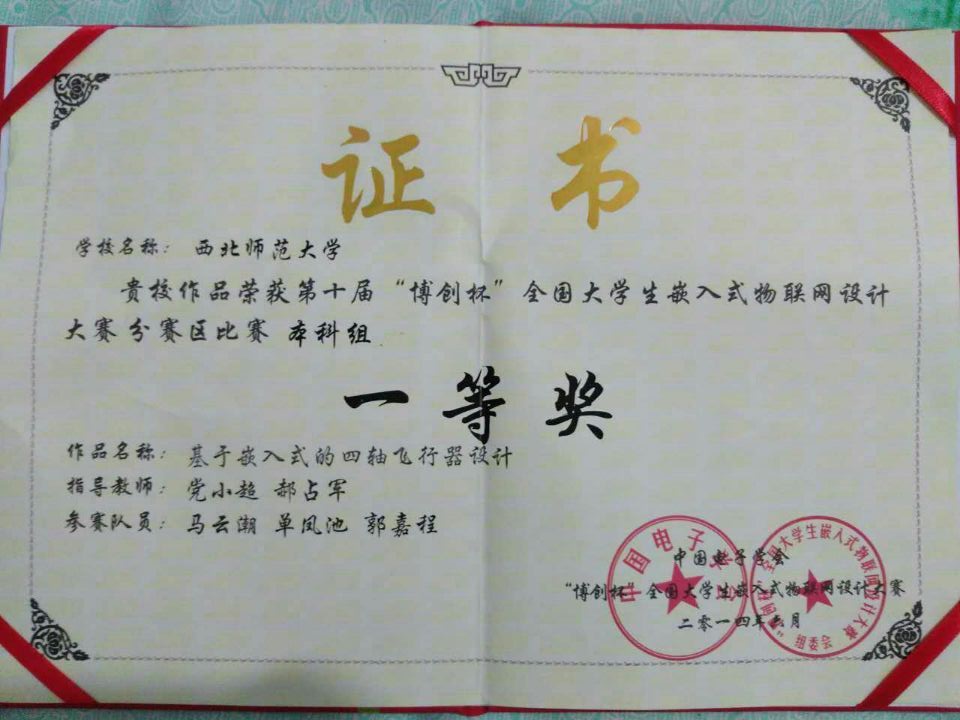 证书
学校名称：西北师范大学
贵校作品荣获第十届“博创杯”全国大学生嵌入式物联网设计
大赛分赛区比赛 本科组
一等奖
作品名称：基于嵌入式的四轴飞行器设计
指导教师：党小超 郝占军
参赛队员：马云潮 单凤池 郭嘉程
中国电子学会
中国电子学会
“博创杯”全国大学生嵌入式物联网设计大赛
组委会
“博创杯”全国大学生嵌入式物联网设计大赛
二零一四年六月